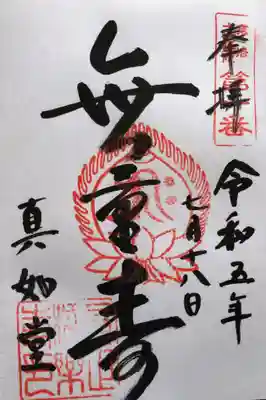 奉拝
令和五年
七月十八日
無量寿
真如堂